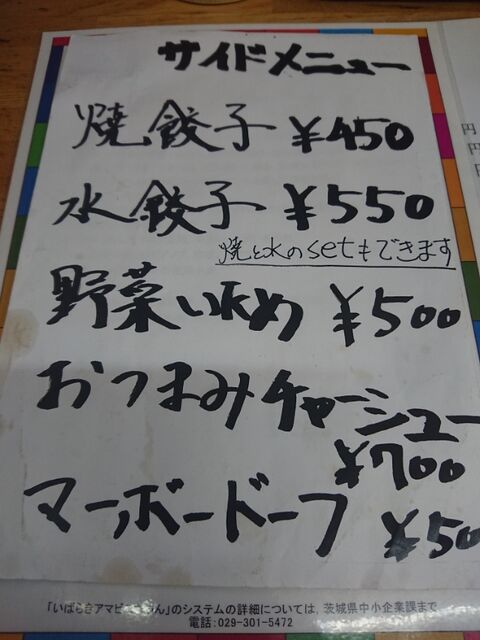 サイドメニュー
焼餃子 ¥450
水餃子 ¥550
焼と水のsetもできます
野菜いため ¥500
おつまみチャーシュー
¥700
マーボードーフ ¥50
円
円
「いばらきアマビエちゃん」のシステムの詳細については、茨城県中小企業課まで
電話:029-301-5472